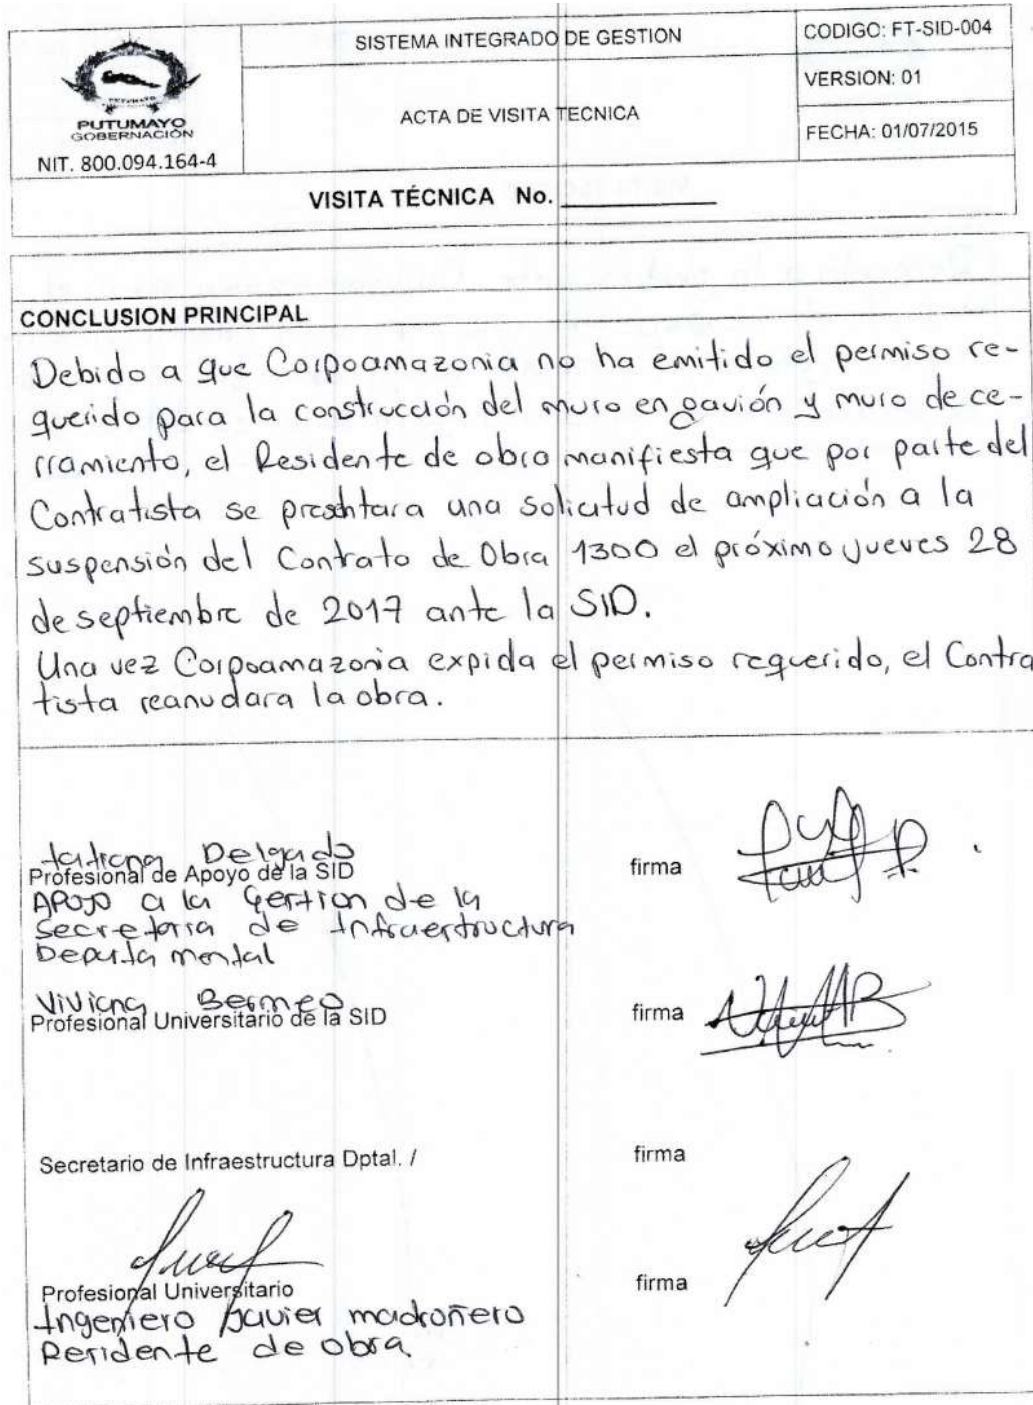 SISTEMA INTEGRADO DE GESTION
CODIGO: FT-SID-004
VERSION: 01
ACTA DE VISITA TECNICA
FECHA: 01/07/2015
PUTUMAYO
GOBERNACIÓN
NIT. 800.094.164-4
VISITA TÉCNICA No.
CONCLUSION PRINCIPAL
Debido a que Corpoamazonia no ha emitido el permiso re-
querido para la construcción del muro en gavión y muro de ce-
rramiento, el Residente de obra manifiesta que por parte del
Contratista se presentara una solicitud de ampliación a la
suspensión del Contrato de Obra 1300 el próximo jueves 28
de septiembre de 2017 ante la SID.
Una vez Corpoamazonia expida el permiso requerido, el Contra
tista reanudara la obra.
Tatiana Delgado
Profesional de Apoyo de la SID
firma
Apoyo a la Gestion de la
Secretaria de Infraestructura
Departamental
Viviana Bermeo
Profesional Universitario de la SID
firma
Secretario de Infraestructura Dptal. /
firma
Profesional Universitario
firma
Ingeniero Javier madroñero
Residente de obra